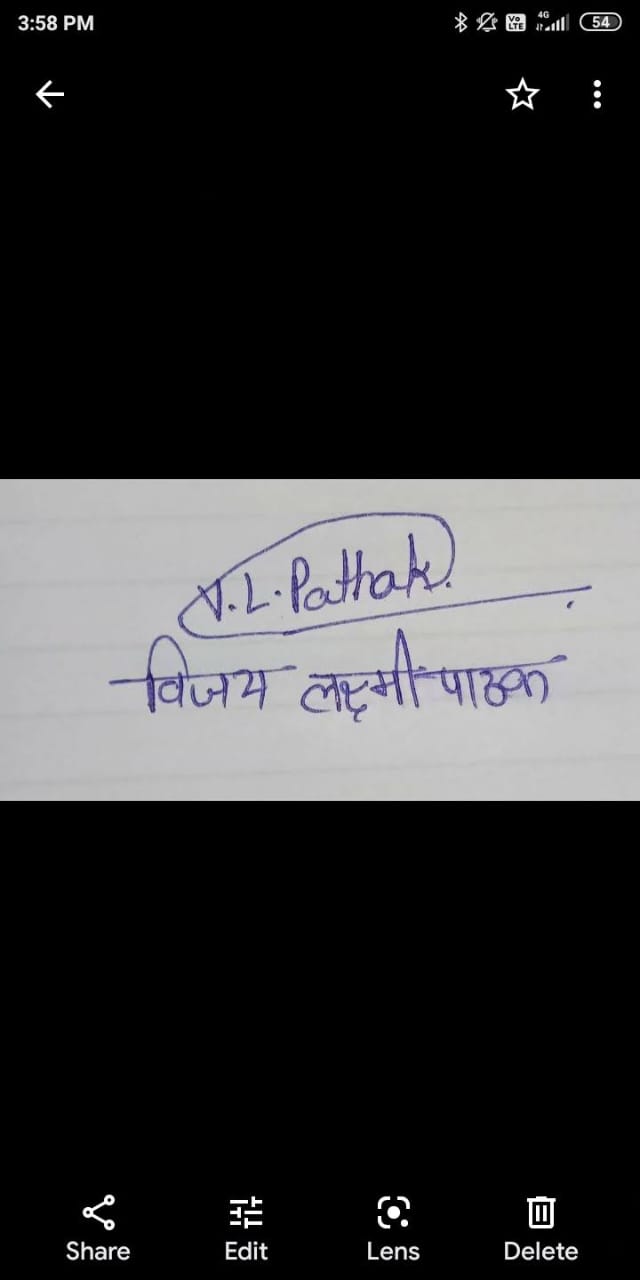 3:58 PM 4G Vo LTE 54
V.L. Pathak.
विजय लक्ष्मी पाठक
Share Edit Lens Delete